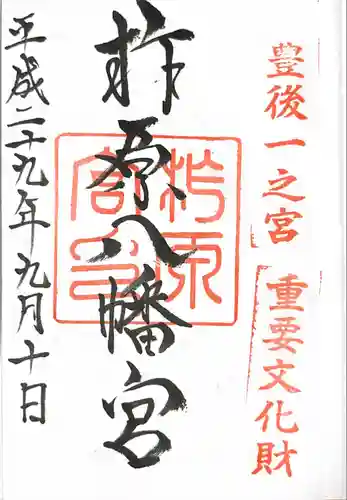 豊後一之宮
重要文化財
柞原八幡宮
柞原
宮印
平成二十九年九月十日